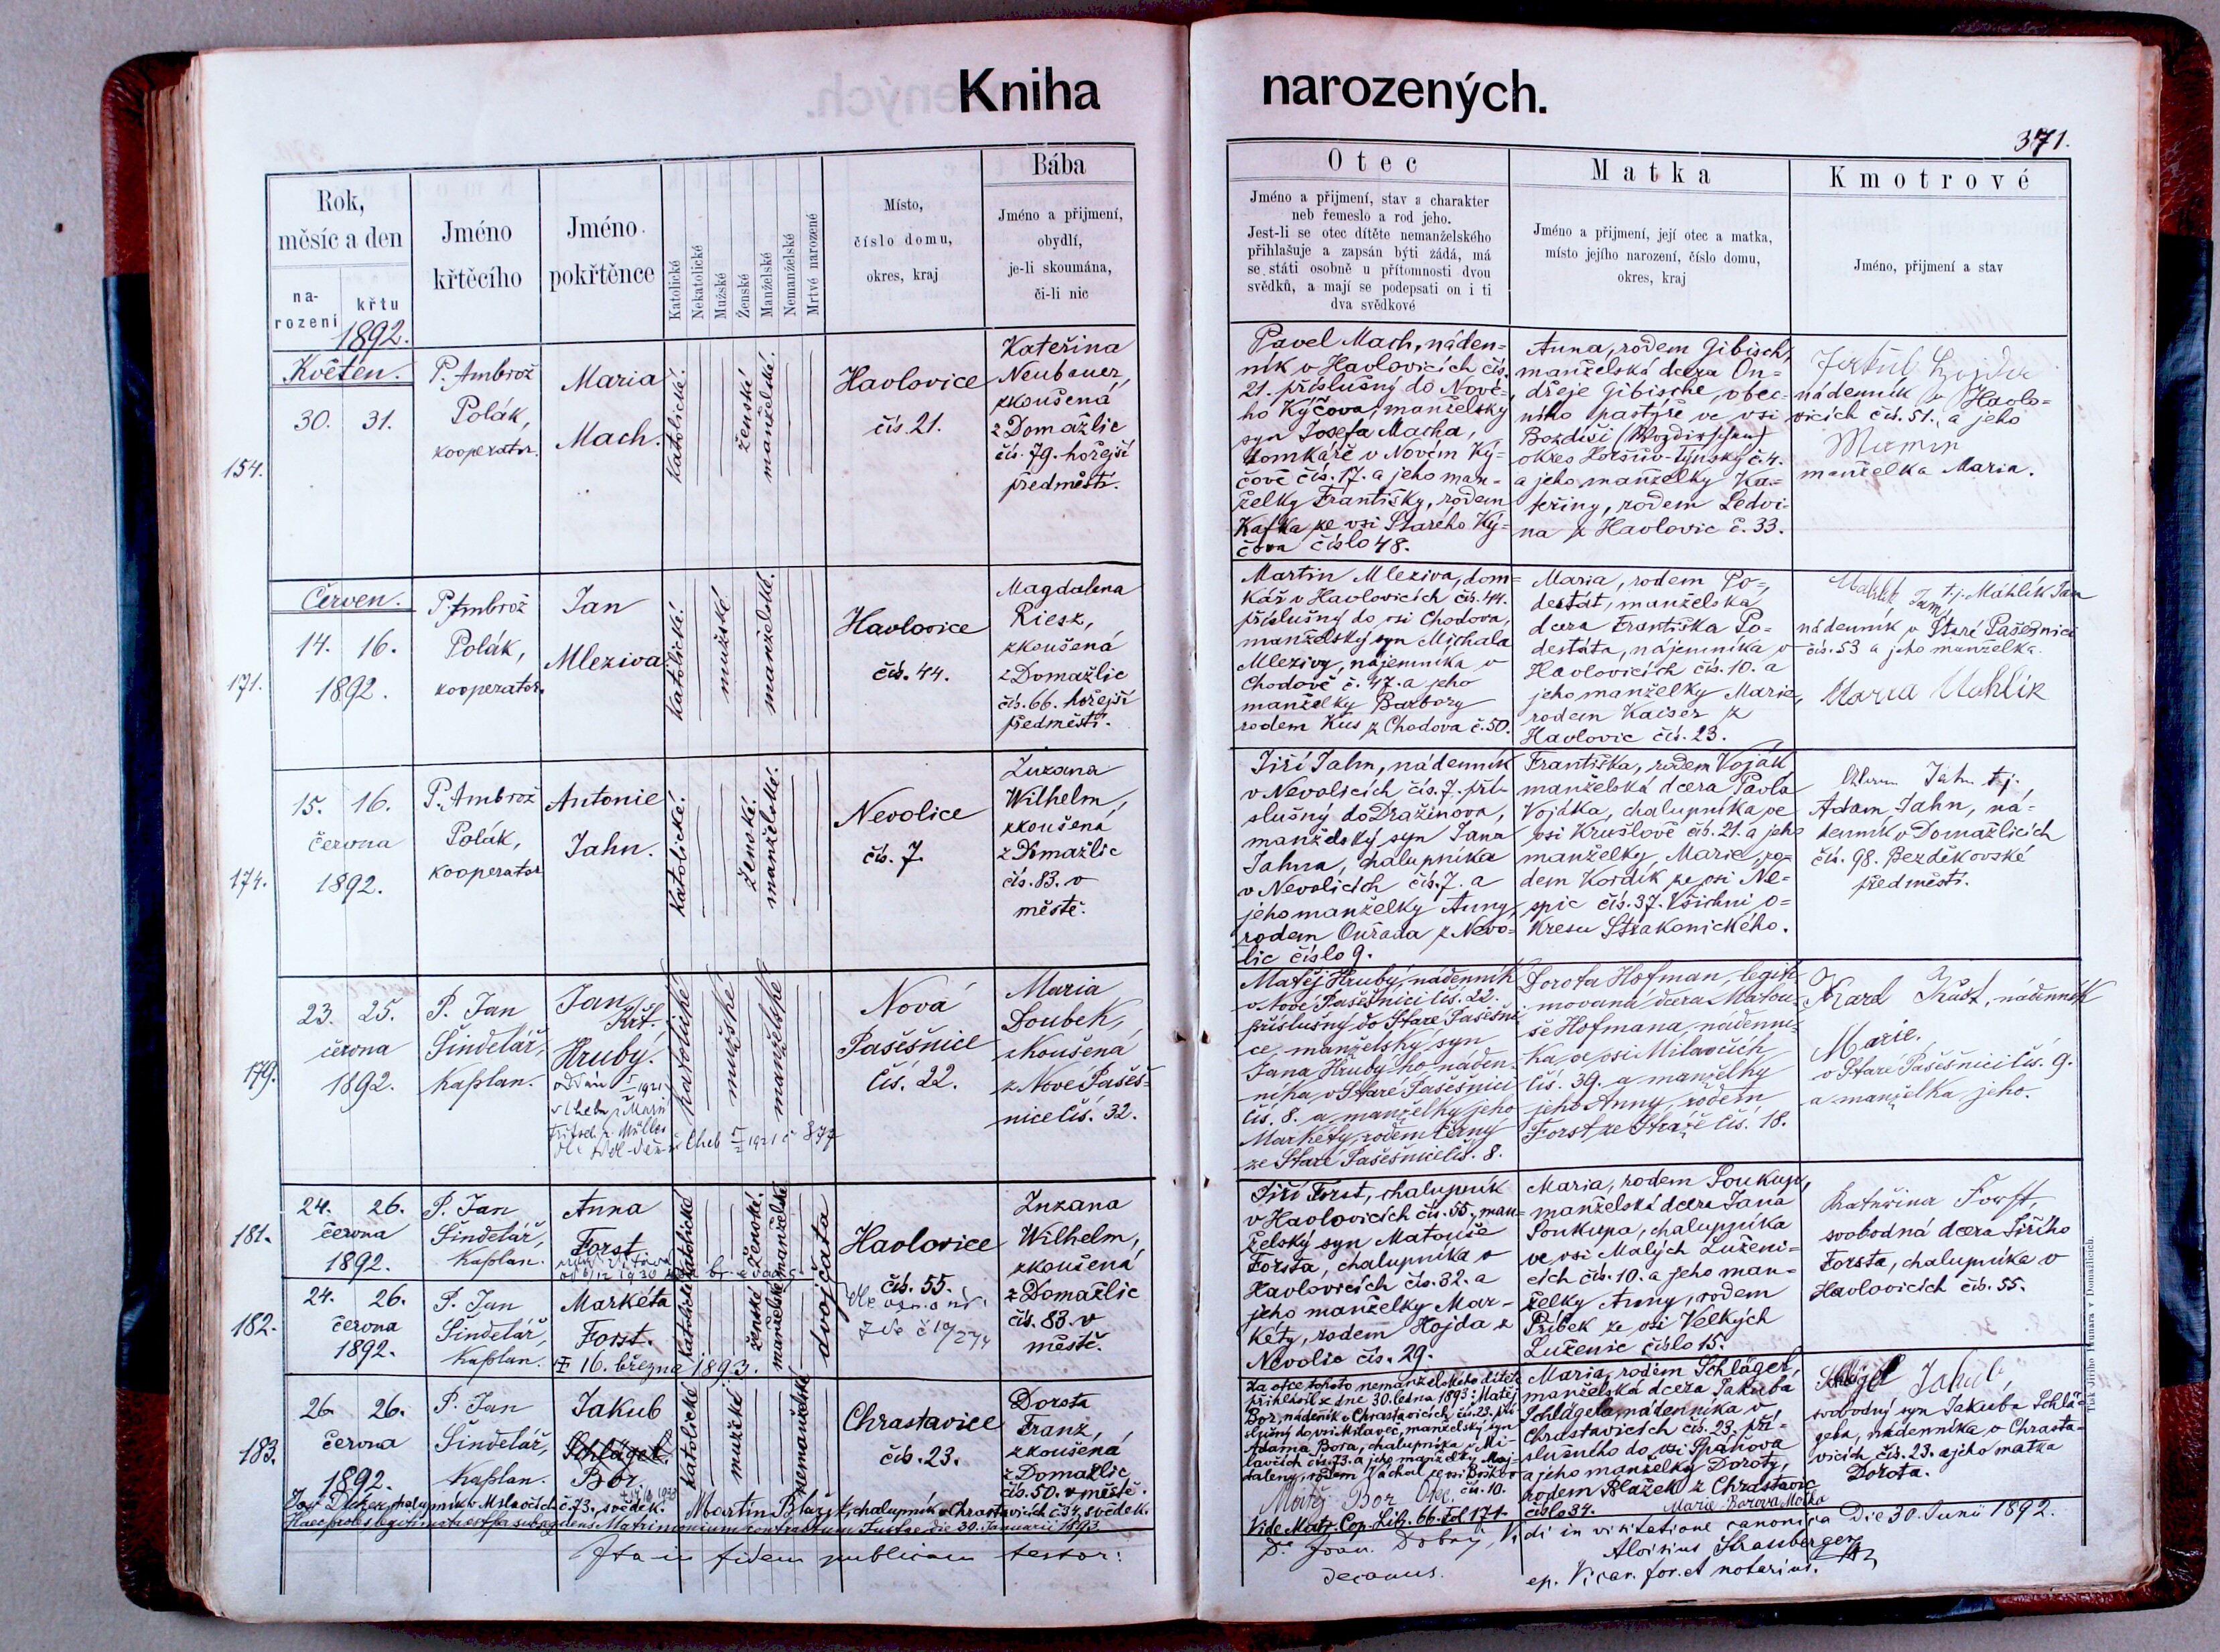 Kniha narozených.
371.
Rok, měsíc a den
narození
křtu
Jméno křtěcího
Jméno pokřtěnce
Katolické
Nekatolické
Mužské
Ženské
Manželské
Nemanželské
Mrtvě narozené
Místo,
číslo domu,
okres, kraj
Bába
Jméno a přijmení,
obydlí,
je-li skoumána,
či-li nic
Otec
Jméno a přijmení, stav a charakter
neb řemeslo a rod jeho.
Jest-li se otec dítěte nemanželského
přihlašuje a zapsán býti žádá, má
se státi osobně u přítomnosti dvou
svědků, a mají se podepsati on i ti
dva svědkové
Matka
Jméno a přijmení, její otec a matka,
místo jejího narození, číslo domu,
okres, kraj
Kmotrové
Jméno, přijmení a stav
1892.
154.
Květen.
30. 31.
P. Ambrož
Polák,
kooperator.
Maria
Mach.
katolické.
ženské
manželské.
Havlovice
čís. 21.
Kateřina
Neubauer,
zkoušená
z Domažlic
čís. 79. hořejší
předměstí.
Pavel Mach, náden=
ník v Havlovicích čís.
21. příslušný do Nové=
ho Kýčova, manželský
syn Josefa Macha,
domkáře v Novém Ký=
čově čís. 17. a jeho man=
želky Františky, rodem
Kafka ze vsi Starého Ký=
čova číslo 48.
Anna, rodem Gibisch,
manželská dcera On=
dřeje Gibische, obec=
ního pastýře ve vsi
Bozdíši (Wozdirschau)
okres Horšův-Týnský č. 4.
a jeho manželky Ka=
teřiny, rodem Ledvi=
na z Havlovic č. 33.
nádenník v Havlo=
vicích čís. 51., a jeho
manželka Maria.
171.
Červen.
14. 16.
1892.
P. Ambrož
Polák,
kooperator.
Jan
Mleziva
katolické.
mužské
manželské.
Havlovice
čís. 44.
Magdalena
Riesz,
zkoušená
z Domažlic
čís. 66. hořejší
předměstí.
Martin Mleziva, dom=
kář v Havlovicích čís. 44.
příslušný do vsi Chodova,
manželský syn Michala
Mlezivy, nájemníka v
Chodově č. 47. a jeho
manželky Barbory
rodem Kus z Chodova č. 50.
Maria, rodem Po=
destát, manželská
dcera Františka Po=
destáta, nájemníka v
Havlovicích čís. 10. a
jeho manželky Marie,
rodem Kaiser z
Havlovic čís. 23.
Jan, t.j. Máhlík Jan
nádenník v Staré Pasečnici
čís. 53 a jeho manželka
Maria Mahlik
174.
15. 16.
června
1892.
P. Ambrož
Polák,
kooperator
Antonie
Jahn.
katolické.
ženské.
manželské.
Nevolice
čís. 7.
Zuzana
Wilhelm,
zkoušená
z Domažlic
čís. 83. v
městě.
Jiří Jahn, nádenník
v Nevolicích čís. 7. pří=
slušný do Dražinova,
manželský syn Jana
Jahna, chalupníka
v Nevolicích čís. 7. a
jeho manželky Anny,
rodem Ouřada z Nevo=
lic číslo 9.
Františka, rodem Voják
manželská dcera Pavla
Vojáka, chalupníka ve
vsi Krušlově čís. 21. a jeho
manželky, Marie, ro=
dem Kordík ze vsi Ne=
spic čís. 37. Všichni o=
kresu Strakonického.
Jahn t.j.
Adam Jahn, ná=
denník v Domažlicích
čís. 98. Bezděkovské
předměstí.
179.
23. 25.
června
1892.
P. Jan
Šindelář,
kaplan.
Jan
Křt.
Hrubý.
katolické
mužské
manželské
Nová
Pasečnice
čís. 22.
Maria
Doubek,
zkoušená
z Nové Paseč=
nice čís. 32.
Matěj Hrubý, nádenník
v Nové Pasečnici čís. 22.
příslušný do Staré Pasečni
ce, manželský syn
Jana Hrubý-ho, náden=
níka v Staré Pasečnici
čís. 8. a manželky jeho
Markéty, rodem Černý
ze Staré Pasečnice čís. 8.
Dorota Hofman, legiti=
movaná dcera Matou=
še Hofmana, nádenní=
ka ve vsi Milavčích
čís. 39. a manželky
jeho Anny, rodem
Forst ze Stráže čís. 18.
Karel, nádenník
Marie,
v Staré Pasečnici čís. 9.
a manželka jeho.
181.
24. 26.
června
1892.
P. Jan
Šindelář,
kaplan.
Anna
Forst
katolické
ženské.
manželské
dvojčata
Havlovice
čís. 55.
Zuzana
Wilhelm,
zkoušená
z Domažlic
čís. 83. v
městě.
Jiří Forst, chalupník
v Havlovicích čís. 55., man=
želský syn Matouše
Forsta, chalupníka v
Havlovicích čís. 32. a
jeho manželky Mar=
kéty, rodem Hojda z
Nevolic čís. 29.
Maria, rodem Soukup,
manželská dcera Jana
Soukupa, chalupníka
ve vsi Malých Luženi=
cích čís. 10. a jeho man=
želky Anny, rodem
Příbek ze vsi Velkých
Luženic číslo 15.
Kateřina Forst,
svobodná dcera Jiřího
Forsta, chalupníka v
Havlovicích čís. 55.
182.
24. 26.
června
1892.
P. Jan
Šindelář,
kaplan.
Markéta
Forst.
katolické
ženské
manželské
16. března 1893.
183.
26. 26.
června
1892.
P. Jan
Šindelář,
kaplan.
Jakub
Schlägel.
Bor
katolické
mužské
nemanželské
Chrastavice
čís. 23.
Dorota
Franz,
zkoušená
z Domažlic
čís. 50. v městě.
Za otce tohoto nemanželského dítěte
přihlásil se dne 30. ledna 1893: Matěj
Bor, nádeník v Chrastavicích čís. 23. pří=
slušný do vsi Milavec, manželský syn
Adama Bora, chalupníka v Mi=
lavčích čís. 73. a jeho manželky Mag=
daleny, rodem
čís. 10.
Matěj Bor Otec.
Maria, rodem Schlägel,
manželská dcera Jakuba
Schlägela, nádenníka v
Chrastavicích čís. 23. pří=
slušného do vsi Spáňova
a jeho manželky Doroty,
rodem Blažek z Chrastavic
číslo 34.
Marie Borova Matka
Schlägel Jakub,
svobodný syn Jakuba Schlä=
gela, nádenníka v Chrasta=
vicích čís. 23. a jeho matka
Dorota.
chalupník v Milavčích č. 73., svědek. Martin Blažek, chalupník v Chrastavicích č. 34, svědek.
Haec proles legitimata est per subsequens Matrimonium contractum die 30. Januarii 1893
Vide Matr. Cop. Lib. 66. fol 171
Ita in fidem publicam testor:
Dr. Joan. Dobrý,
decanus.
Vidi in visitatione canonica Die 30. Junii 1892.
Aloisius Strassberger
ep. Vicar. for. et notarius.
Tisk Jiřího Prunara v Domažlicích.